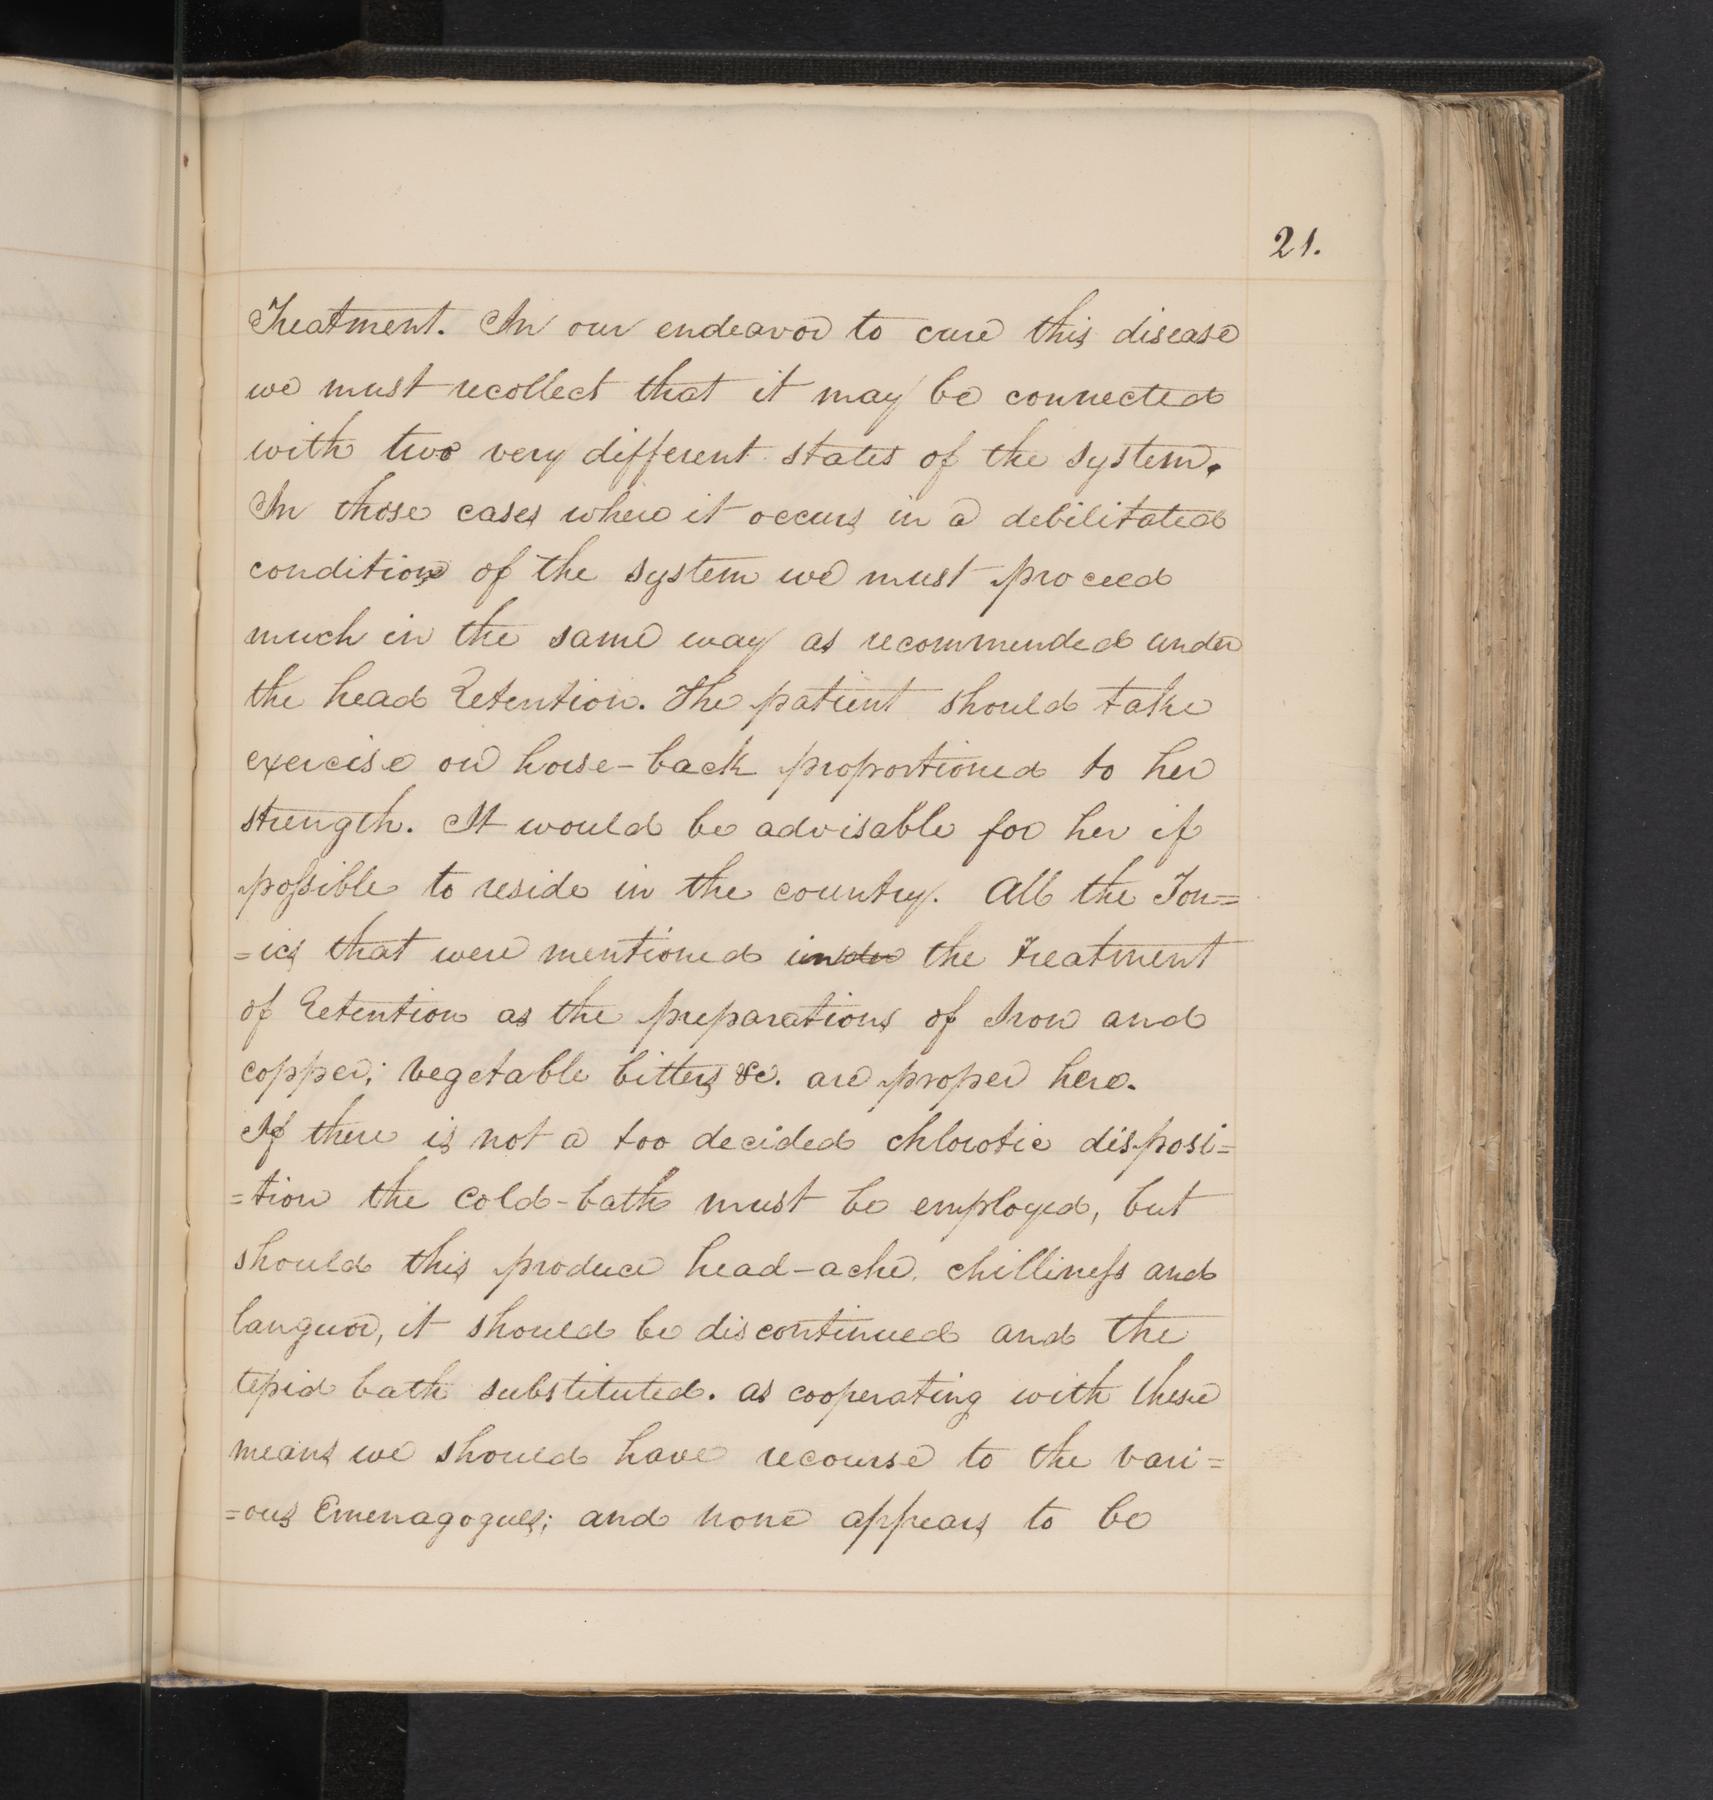 21.
Treatment. In our endeavor to cure this disease
we must recollect that it may be connected
with two very different states of the system.
In those cases where it occurs in a debilitated
condition of the system we must proceed
much in the same way as recommended under
the head Retention. The patient should take
exercise on horse-back proportioned to her
strength. It would be advisable for her if
possible to reside in the country. All the Ton=
=ics that were mentioned in the treatment
of Retention as the preparations of Iron and
copper; vegetable bitters &c. are proper here.
If there is not a too decided chlorotic disposi=
=tion the cold-bath must be employed, but
should this produce head-ache, chilliness and
languor, it should be discontinued and the
tepid bath substituted. as cooperating with these
means we should have recourse to the vari=
=ous Emenagogues; and none appears to be